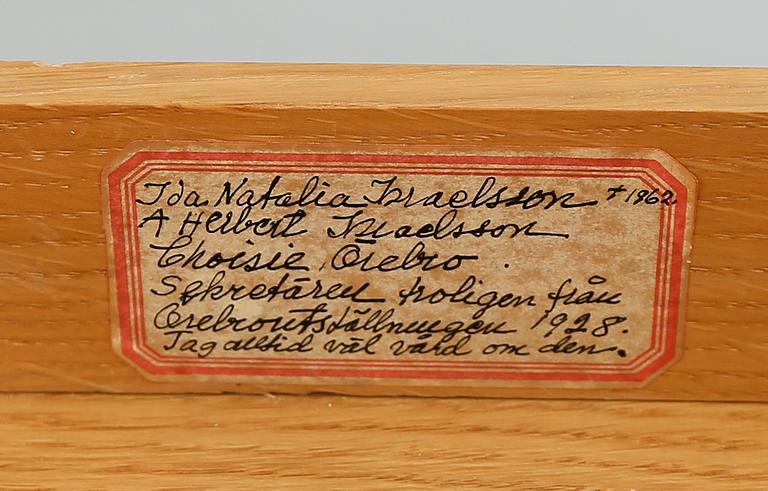 Ida Natalia Israelsson † 1962
A Herbert Israelsson
Choisie, Örebro.
Sekretären troligen från
Örebroutställningen 1928.
Tag alltid väl vård om den.